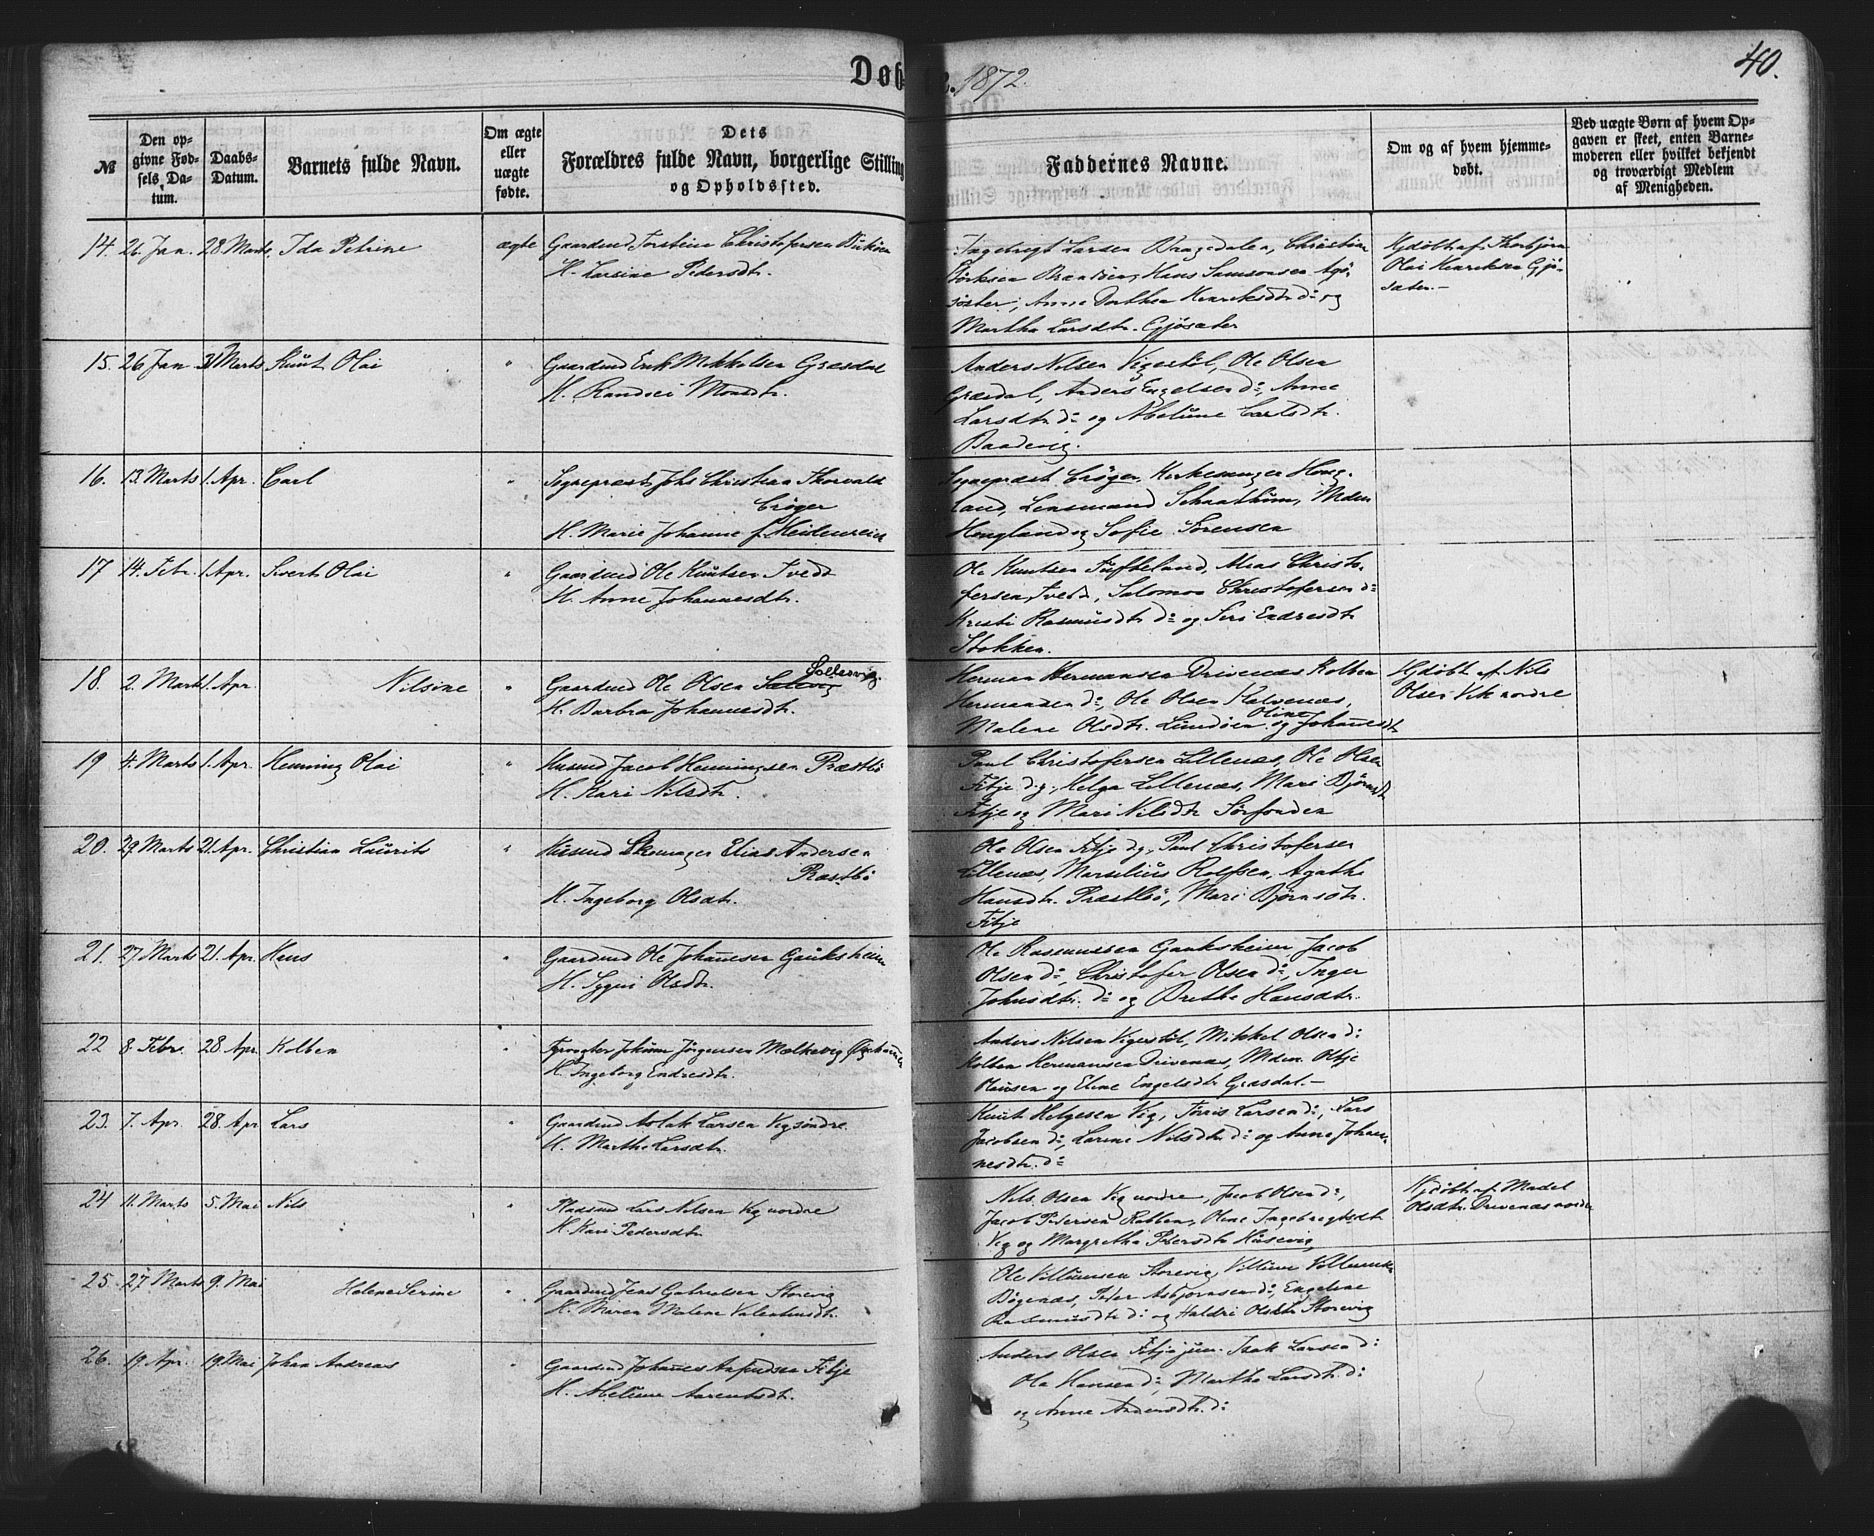 Døb
2. 1872.
40.
№
Den op-
givne Fød-
sels Da-
tum.
Daabs-
Datum.
Barnets fulde Navn.
Om ægte
eller
uægte
fødte.
Dets
Forældres fulde Navn, borgerlige Stilling
og Opholdssted.
Faddernes Navne.
Om og af hvem hjemme-
døbt.
Ved uægte Børn af hvem Op-
gaven er skeet, enten Barne-
moderen eller hvilket bekjendt
og troværdigt Medlem
af Menigheden.
14. 26 Jan. 28 Marts. Ida Petrine ægte Gaardmd Torstein Christofersen
H. Larsine Pedersdtr.
Ingebrigt Larsen Vragedalen, Christian
Hans Samsonsen
Anne Dorthea Henriksdtr d: og
Martha Larsdtr. Gjøsæter
Hjdøbt af Thorbjørn
Olai Henriksen Gjø-
sæter.-
15. 26 Jan 31 Marts Knut Olai " Gaardmd Erik Mikkelsen Græsdal
H. Randvei Monsdtr.
Anders Nilsen Vigestøl, Ole Olsen
Græsdal, Anders Engelsen d:, Anne
Larsdtr d: og Abelune Carlsdtr.
Baadevig.
16. 13. Marts 1. Apr. Carl " Sogneprest Johs Christian Thorvald
Crøger
H. Marie Johanne f. Heidenreich
Sogneprest Crøger, Kirkesanger Houg-
land, Lensmand Schanthum, Mdm
Hougland og Sofie Sørensen
17 14. Febr. 1. Apr. Sivert Olai " Gaardmd Ole Knutsen Tvedt
H. Anne Johannesdtr.
Ole Knutsen Tufteland, Mias Christo-
fersen Tvedt, Salomon Christofersen d:
Kristi Rasmusdtr d: og Siri Endresdtr
Stokken.
18. 2. Marts 1. Apr. Nilsine " Gaardmd Ole Olsen Sallevig.
H. Barbra Johannesdtr.
Herman Hermansen Drivenæs, Kolben
Hermansen d:, Ole Olsen Kalvenæs,
Malene Olsdtr. Lundøen og Oline Johannesdtr
Hjdøbt af Nils
Olsen Vik nordre
19 4. Marts 1. Apr. Henning Olai " Husmd Jacob Henningsen Præstbø
H. Kari Nilsdtr.
Paul Christofersen Lillenæs, Ole Olsen
Fitje d.y., Helga Lillenæs, Mari Bjørnsdtr
Fitje og Mari Nilsdtr Sørfonden
20. 29 Marts 21. Apr. Christian Laurits " Husmd Skomager Elias Andersen
Præstbø
H. Ingeborg Olsdtr.
Ole Olsen Fitje d.y., Paul Christofersen
Lillenæs, Marselius Rolfsen, Agathe
Hansdtr. Præstbø, Mari Bjørnsdtr.
Fitje
21. 27 Marts 21. Apr. Hans " Gaardmd Ole Johannesen Gauksheim
H. Sygni Olsdtr.
Ole Rasmussen Gauksheim, Jacob
Olsen d:, Christofer Olsen d:, Inger
Johnsdtr. d: og Brethe Hansdtr.
22 8. Febr. 28 Apr. Kolben " Fyrvogter Jokum Jørgensen Mælkevig
H. Ingeborg Endresdtr.
Anders Nilsen Vigestøl, Mikkel Olsen d:
Kolben Hermansen Drivenæs, Mdm Oltje
Olausen og Eline Engelsdtr Græsdal.-
23. 7. Apr. 28. Apr Lars " Gaardmd Aslak Larsen Vig søndre
H. Marthe Larsdtr.
Knut Helgesen Vig, Torris Larsen d:, Lars
Jacobsen d:, Larine Nilsdtr d: og Anne Johan-
nesdtr. d:
24 11. Marts 5. Mai Nils " Pladsmd Lars Nilsen Vig nordre
H. Kari Pedersdtr
Nils Olsen Vig nordre, Jacob Olsen d:,
Jacob Pedersen Kolben, Oline Ingebregtsdtr
Vig og Margretha Petersdtr Husevig
Hjdøbt af Madel
Olsdtr. Drivenæs nordre
25. 27. Marts 9. Mai Helene Serine " Gaardmd Jens Gabrielsen Storevig
H. Maren Malene Valentinsdtr.
Ole Villumsen Storevig, Villum Villumsen
Bøgenæs, Peder Asbjørnsen d:, Engeline
Rasmusdtr d: og Haldri Olsdtr Storevig
26. 19. Apr. 19. Mai Johan Andreas " Gaardmd Johannes Anfindsen Fitje
H. Abelune Aarentsdtr.
Anders Olsen Fitje jun. Isak Larsen d:
Ole Hansen d:, Martha Larsdtr. d:
og Anne Andersdtr. d: